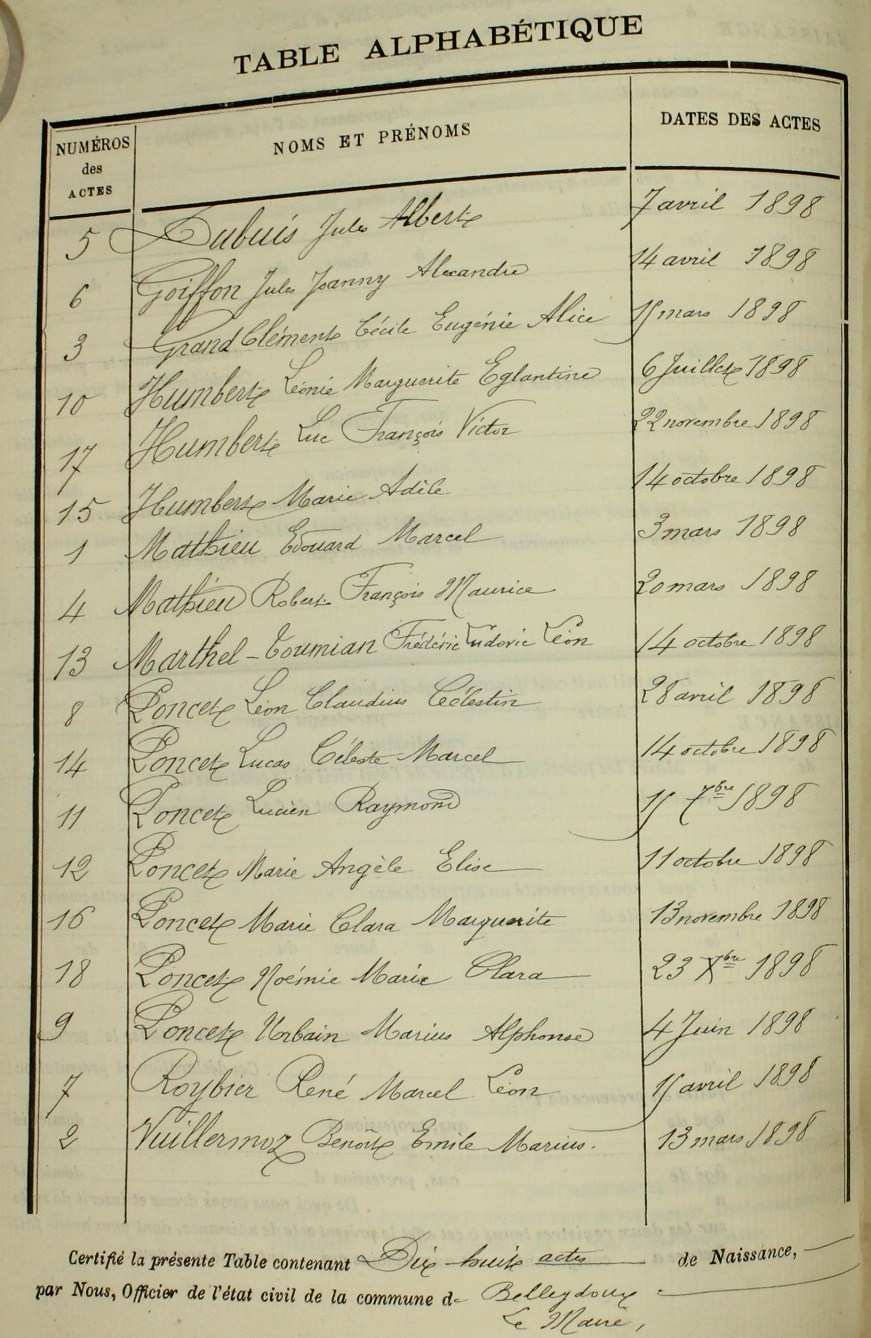 TABLE ALPHABÉTIQUE
NUMÉROS des ACTES NOMS ET PRÉNOMS DATES DES ACTES
5 Dubuis Jules Albert 7 avril 1898
6 Goiffon Jules Joanny Alexandre 14 avril 1898
3 Grand Clément Cécile Eugénie Alice 15 mars 1898
10 Humbert Léonie Marguerite Eglantine 6 Juillet 1898
17 Humbert Luc François Victor 22 novembre 1898
15 Humbert Marie Adèle 14 octobre 1898
1 Mathieu Edouard Marcel 3 mars 1898
4 Mathieu Robert François Maurice 20 mars 1898
13 Marthel-Toumian Frédéric Ludovic Léon 14 octobre 1898
8 Poncet Léon Claudius Célestin 28 avril 1898
14 Poncet Lucas Céleste Marcel 14 octobre 1898
11 Poncet Lucien Raymond 15 7bre 1898
12 Poncet Marie Angèle Elise 11 octobre 1898
16 Poncet Marie Clara Marguerite 13 novembre 1898
18 Poncet Noémie Marie Clara 23 Xbre 1898
9 Poncet Urbain Marius Alphonse 4 Juin 1898
7 Roybier René Marcel Léon 15 avril 1898
2 Vuillermoz Benoît Emile Marius. 13 mars 1898
Certifié la présente Table contenant Dix-huit actes de Naissance,
par Nous, Officier de l'état civil de la commune de Belleydoux
Le Maire,